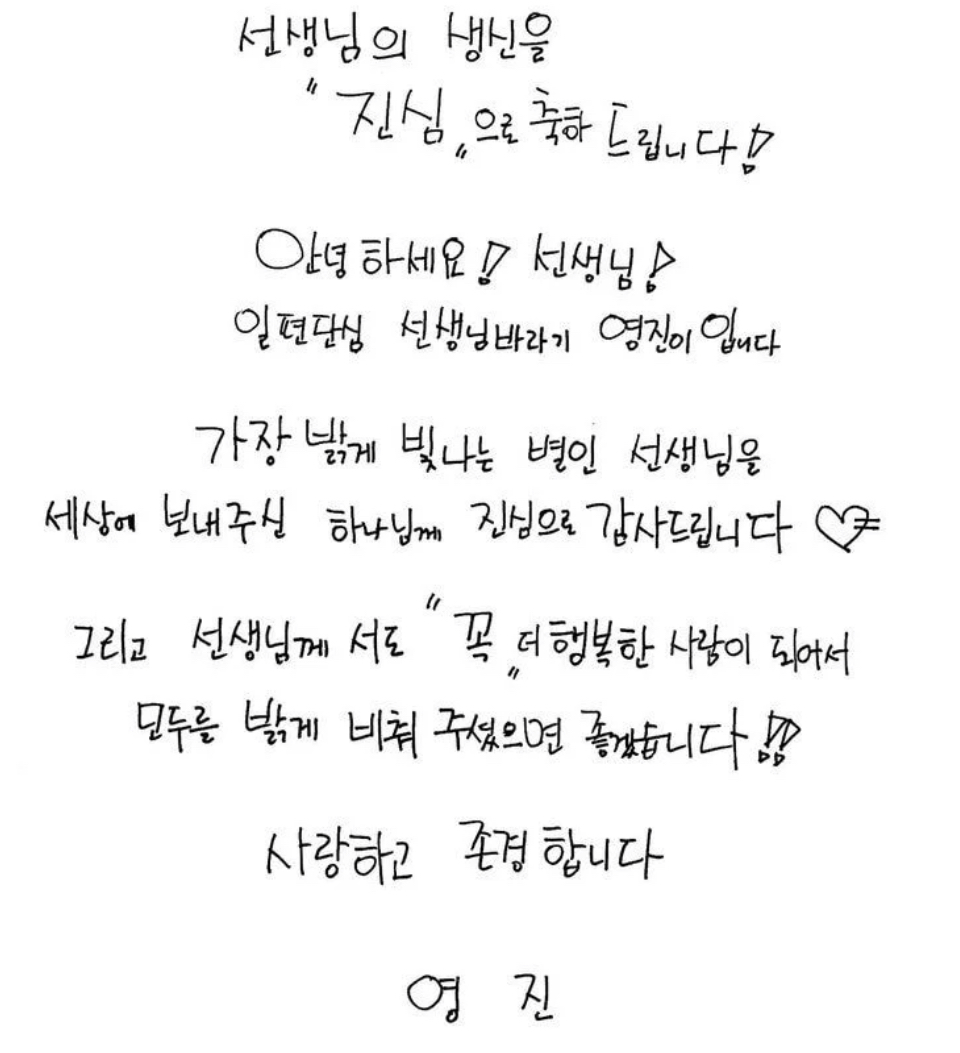 선생님의 생신을
"진심"으로 축하 드립니다!
안녕하세요! 선생님!
일편단심 선생님바라기 영진이입니다
가장 밝게 빛나는 별인 선생님을
세상에 보내주신 하나님께 진심으로 감사드립니다 ♡
그리고 선생님께서도 "꼭" 더 행복한 사람이 되어서
모두를 밝게 비춰 주셨으면 좋겠습니다!!
사랑하고 존경합니다
영 진